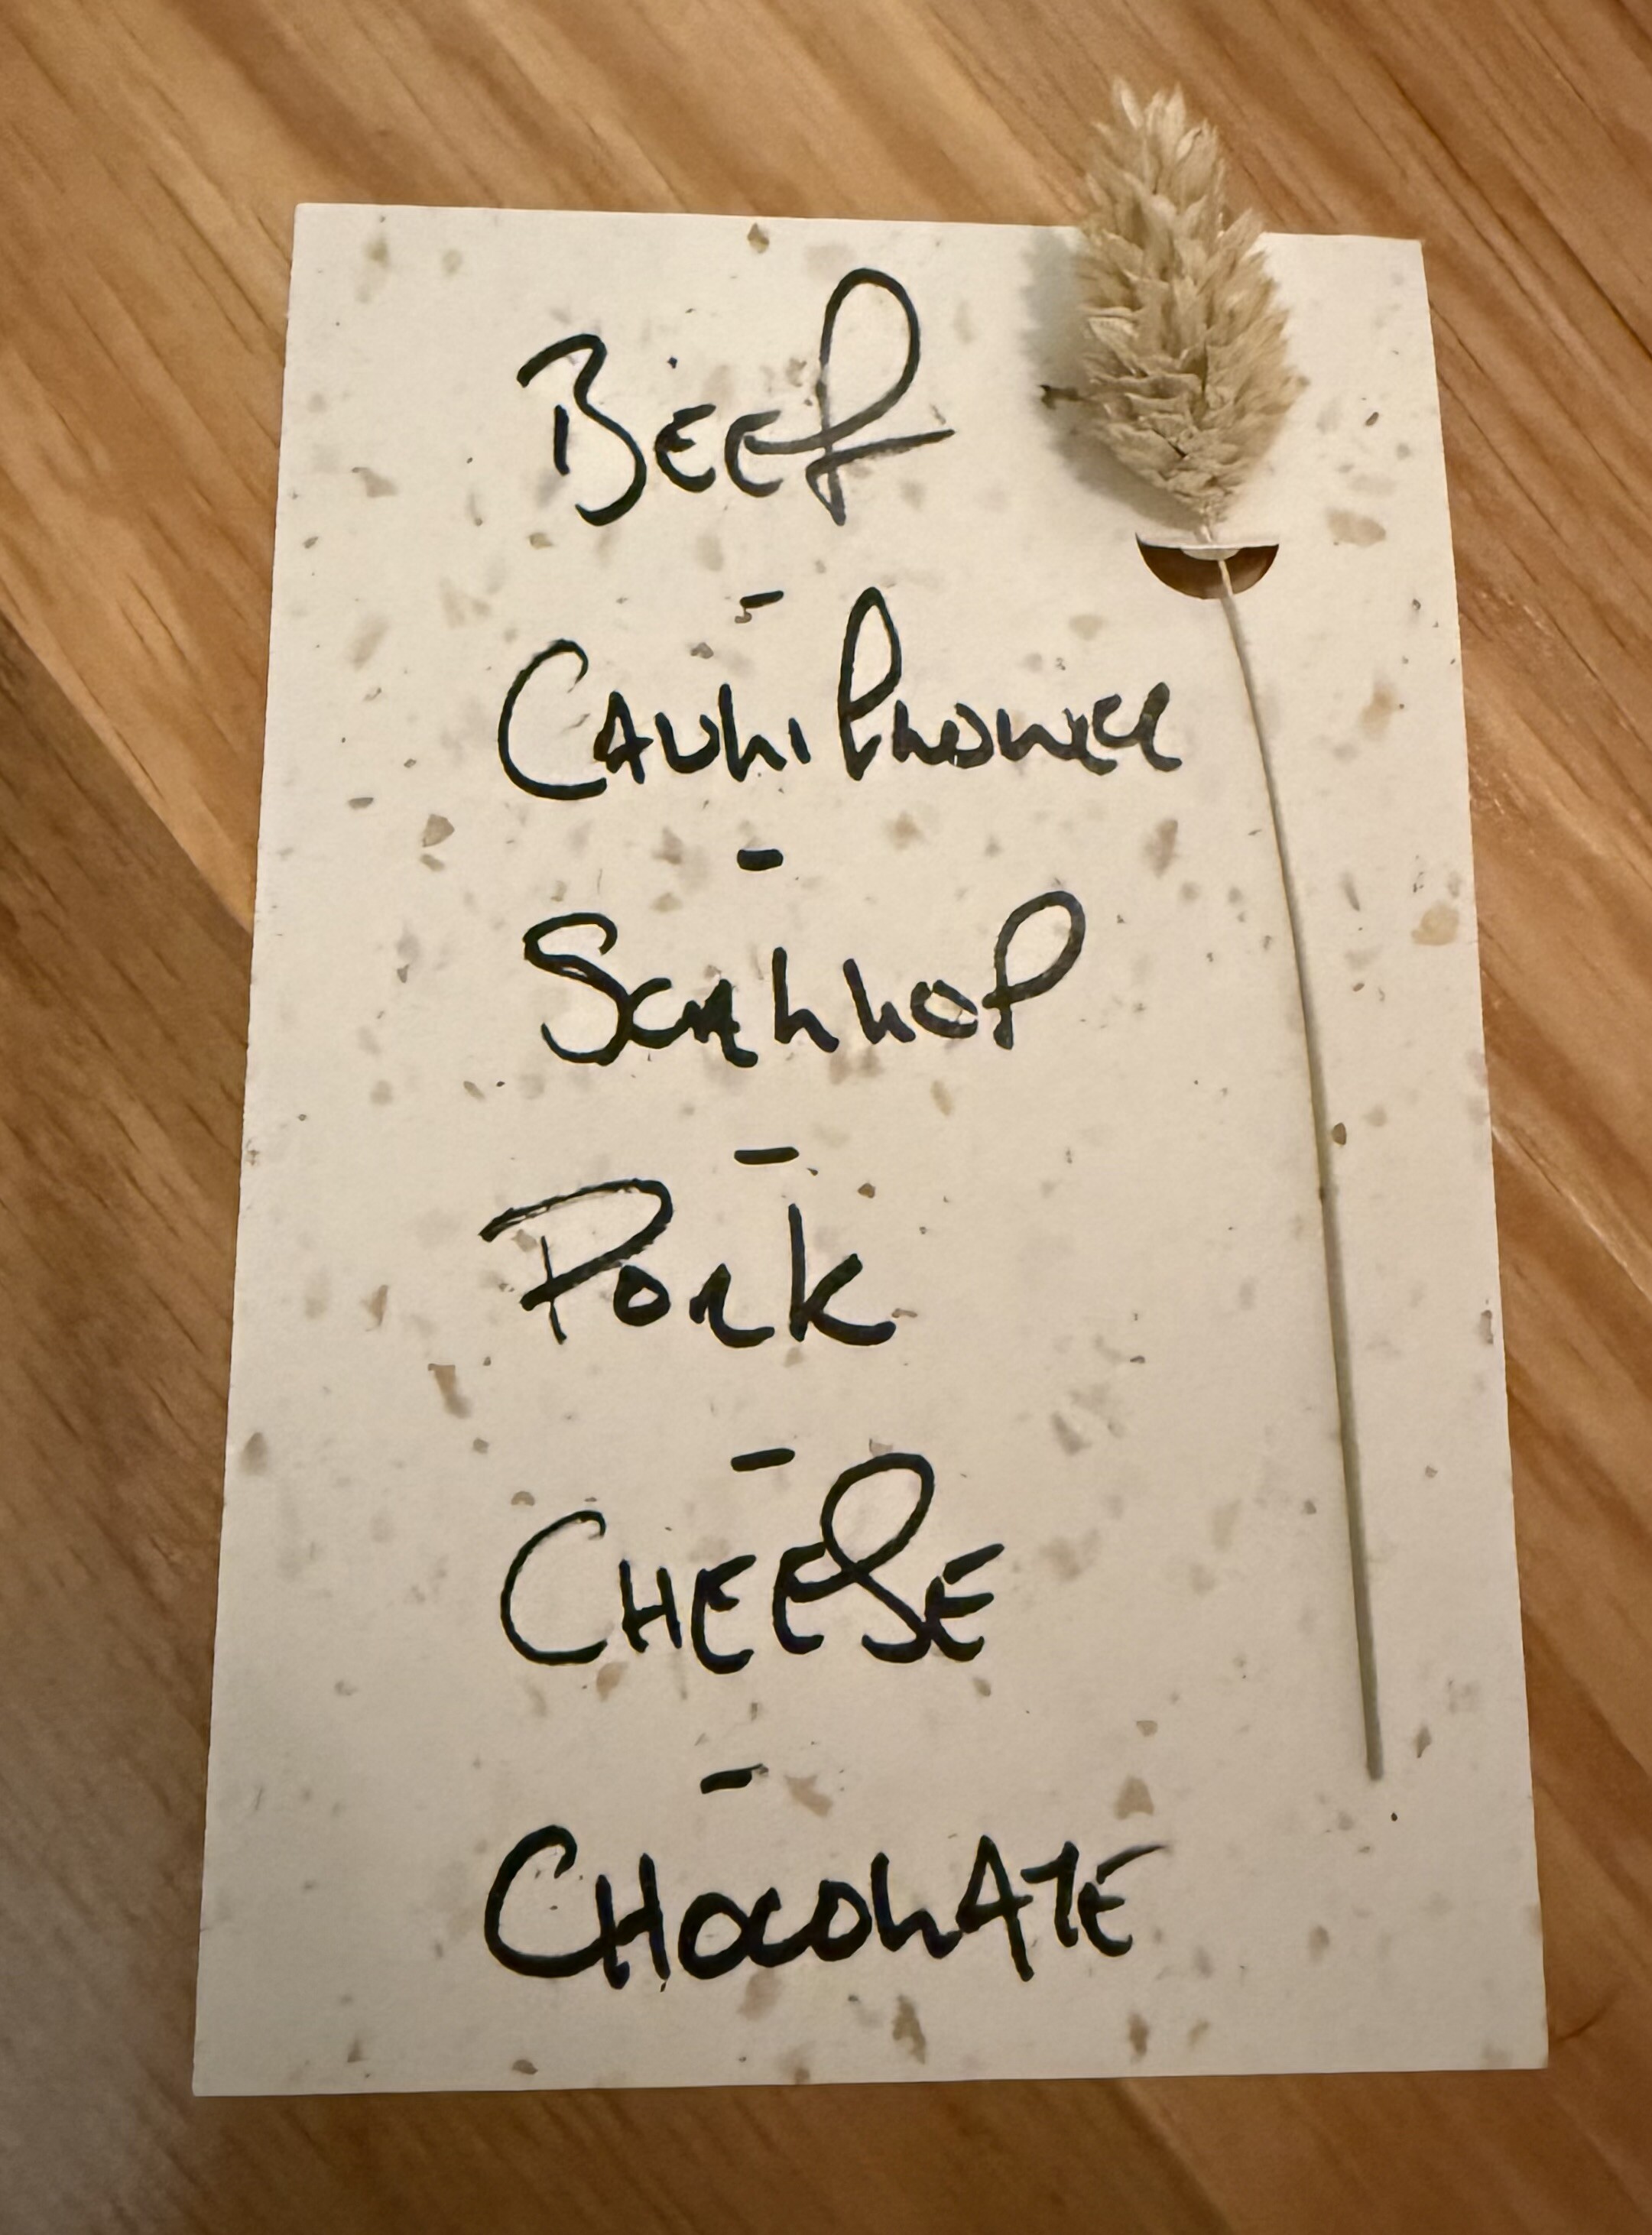 Beef
-
Cauliflower
-
Scallop
-
Pork
-
Cheese
-
Chocolate